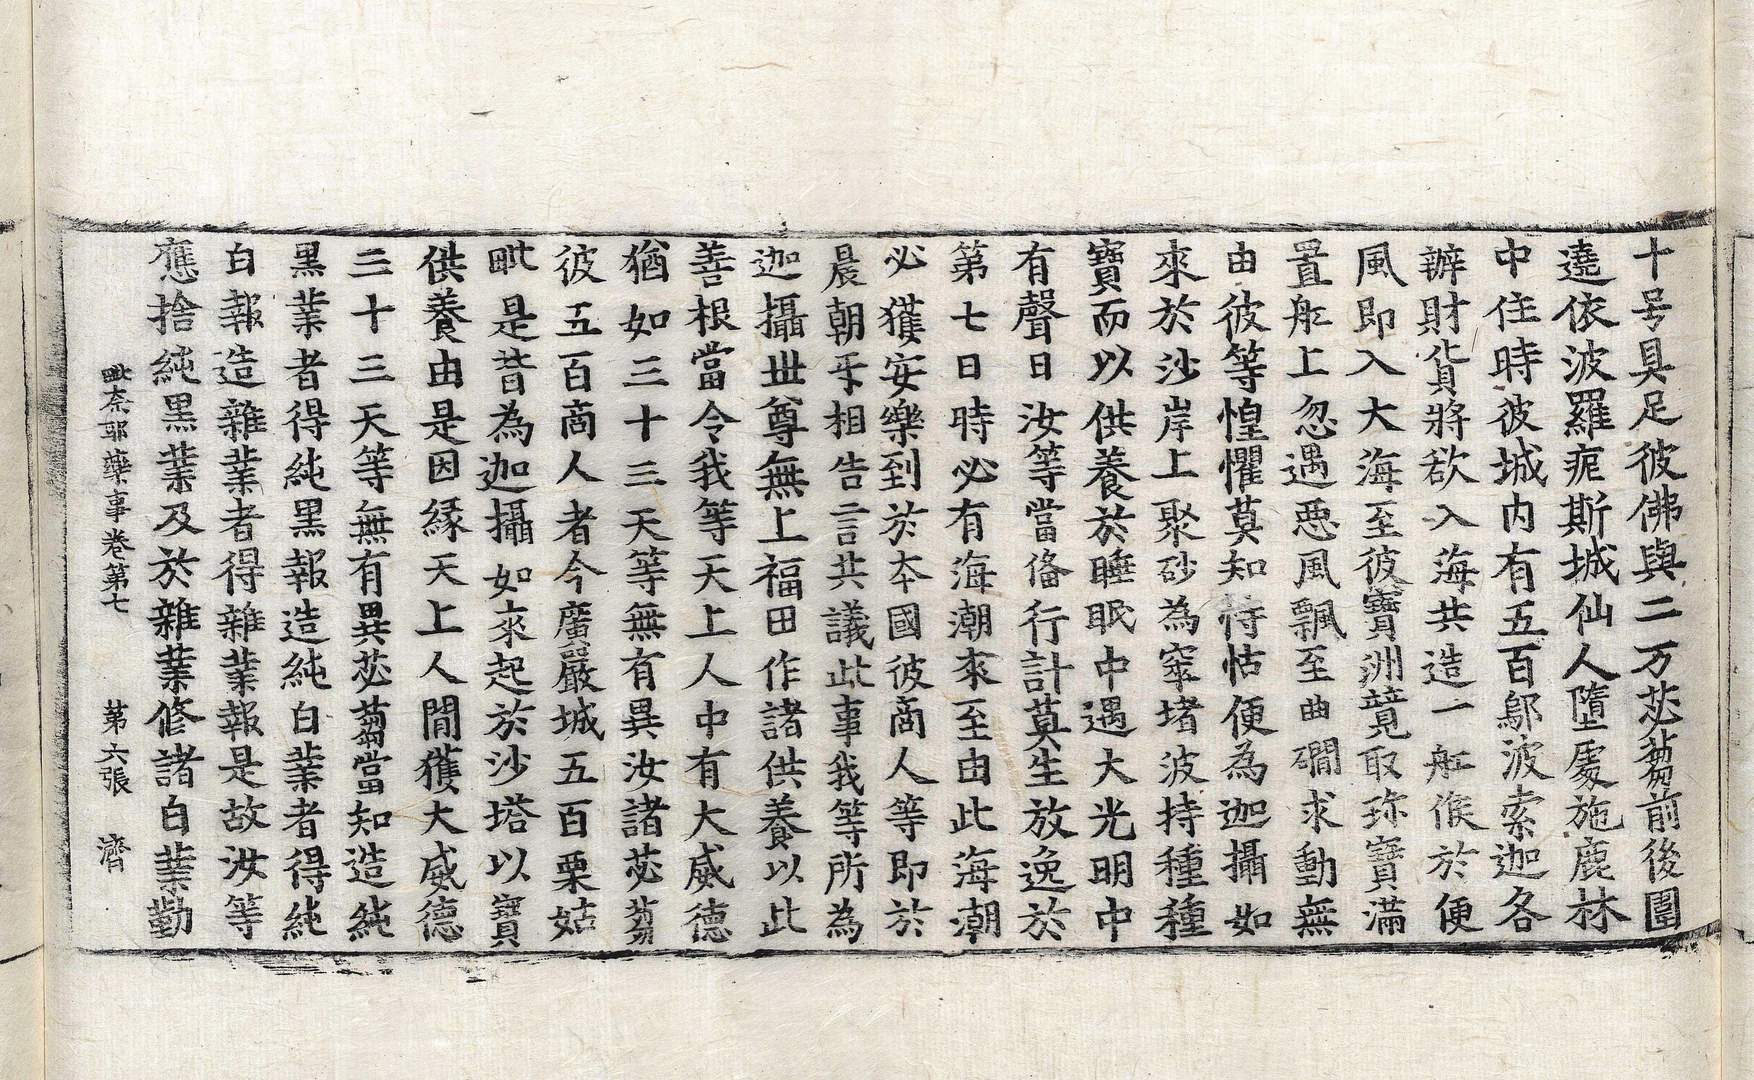 十号具足彼佛與二万苾芻前後圍
遶依波羅痆斯城仙人墮處施鹿林
中住時彼城內有五百鄔波索迦各
辦財貨將欲入海共造一舡候於便
風即入大海至彼寶洲竟取珎寶滿
置舡上忽遇惡風飄至曲磵求動無
由彼等惶懼莫知恃怙便為迦攝如
來於沙岸上聚砂為窣堵波持種種
寶而以供養於睡眠中遇大光明中
有聲曰汝等當俻行計莫生放逸於
第七日時必有海潮來至由此海潮
必獲安樂到於本國彼商人等即於
晨朝㸦相告言共議此事我等所為
迦攝世尊無上福田作諸供養以此
善根當令我等天上人中有大威德
猶如三十三天等無有異汝諸苾芻
彼五百商人者今廣嚴城五百栗姑
毗是昔為迦攝如來起於沙塔以寶
供養由是因緣天上人間獲大威德
三十三天等無有異苾芻當知造純
黑業者得純黑報造純白業者得純
白報造雜業者得雜業報是故汝等
應捨純黑業及於雜業修諸白業勤
毗奈耶藥事卷第七　第六張　濟